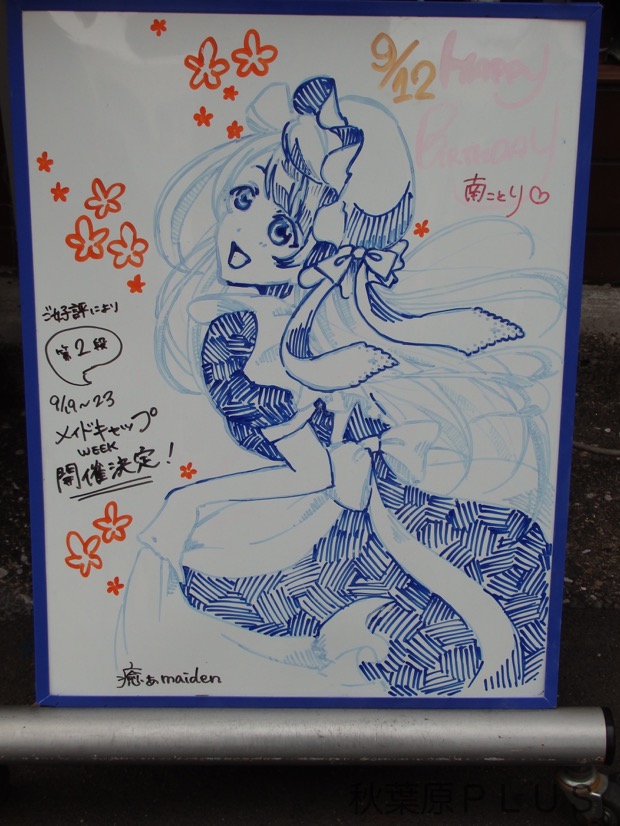 9/12 HAPPY
BIRTHDAY
南ことり♡
ご好評により
第2段
9/19~23
メイドキャップ
WEEK
開催決定!
癒ぁmaiden
秋葉原PLUS